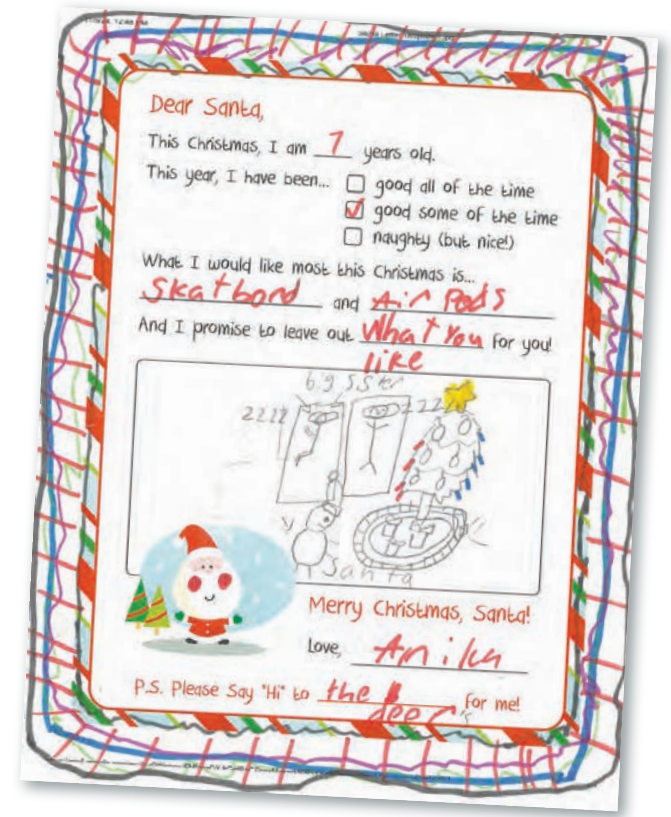 Dear Santa,
This Christmas, I am 7 years old.
This year, I have been... good all of the time
good some of the time
naughty (but nice!)
What I would like most this Christmas is...
Skatbord and Air Pods
And I promise to leave out What You for you!
like
big sister
2222 2222
Santa
Merry Christmas, Santa!
Love, Anika
P.S. Please Say "Hi" to the for me!
deer